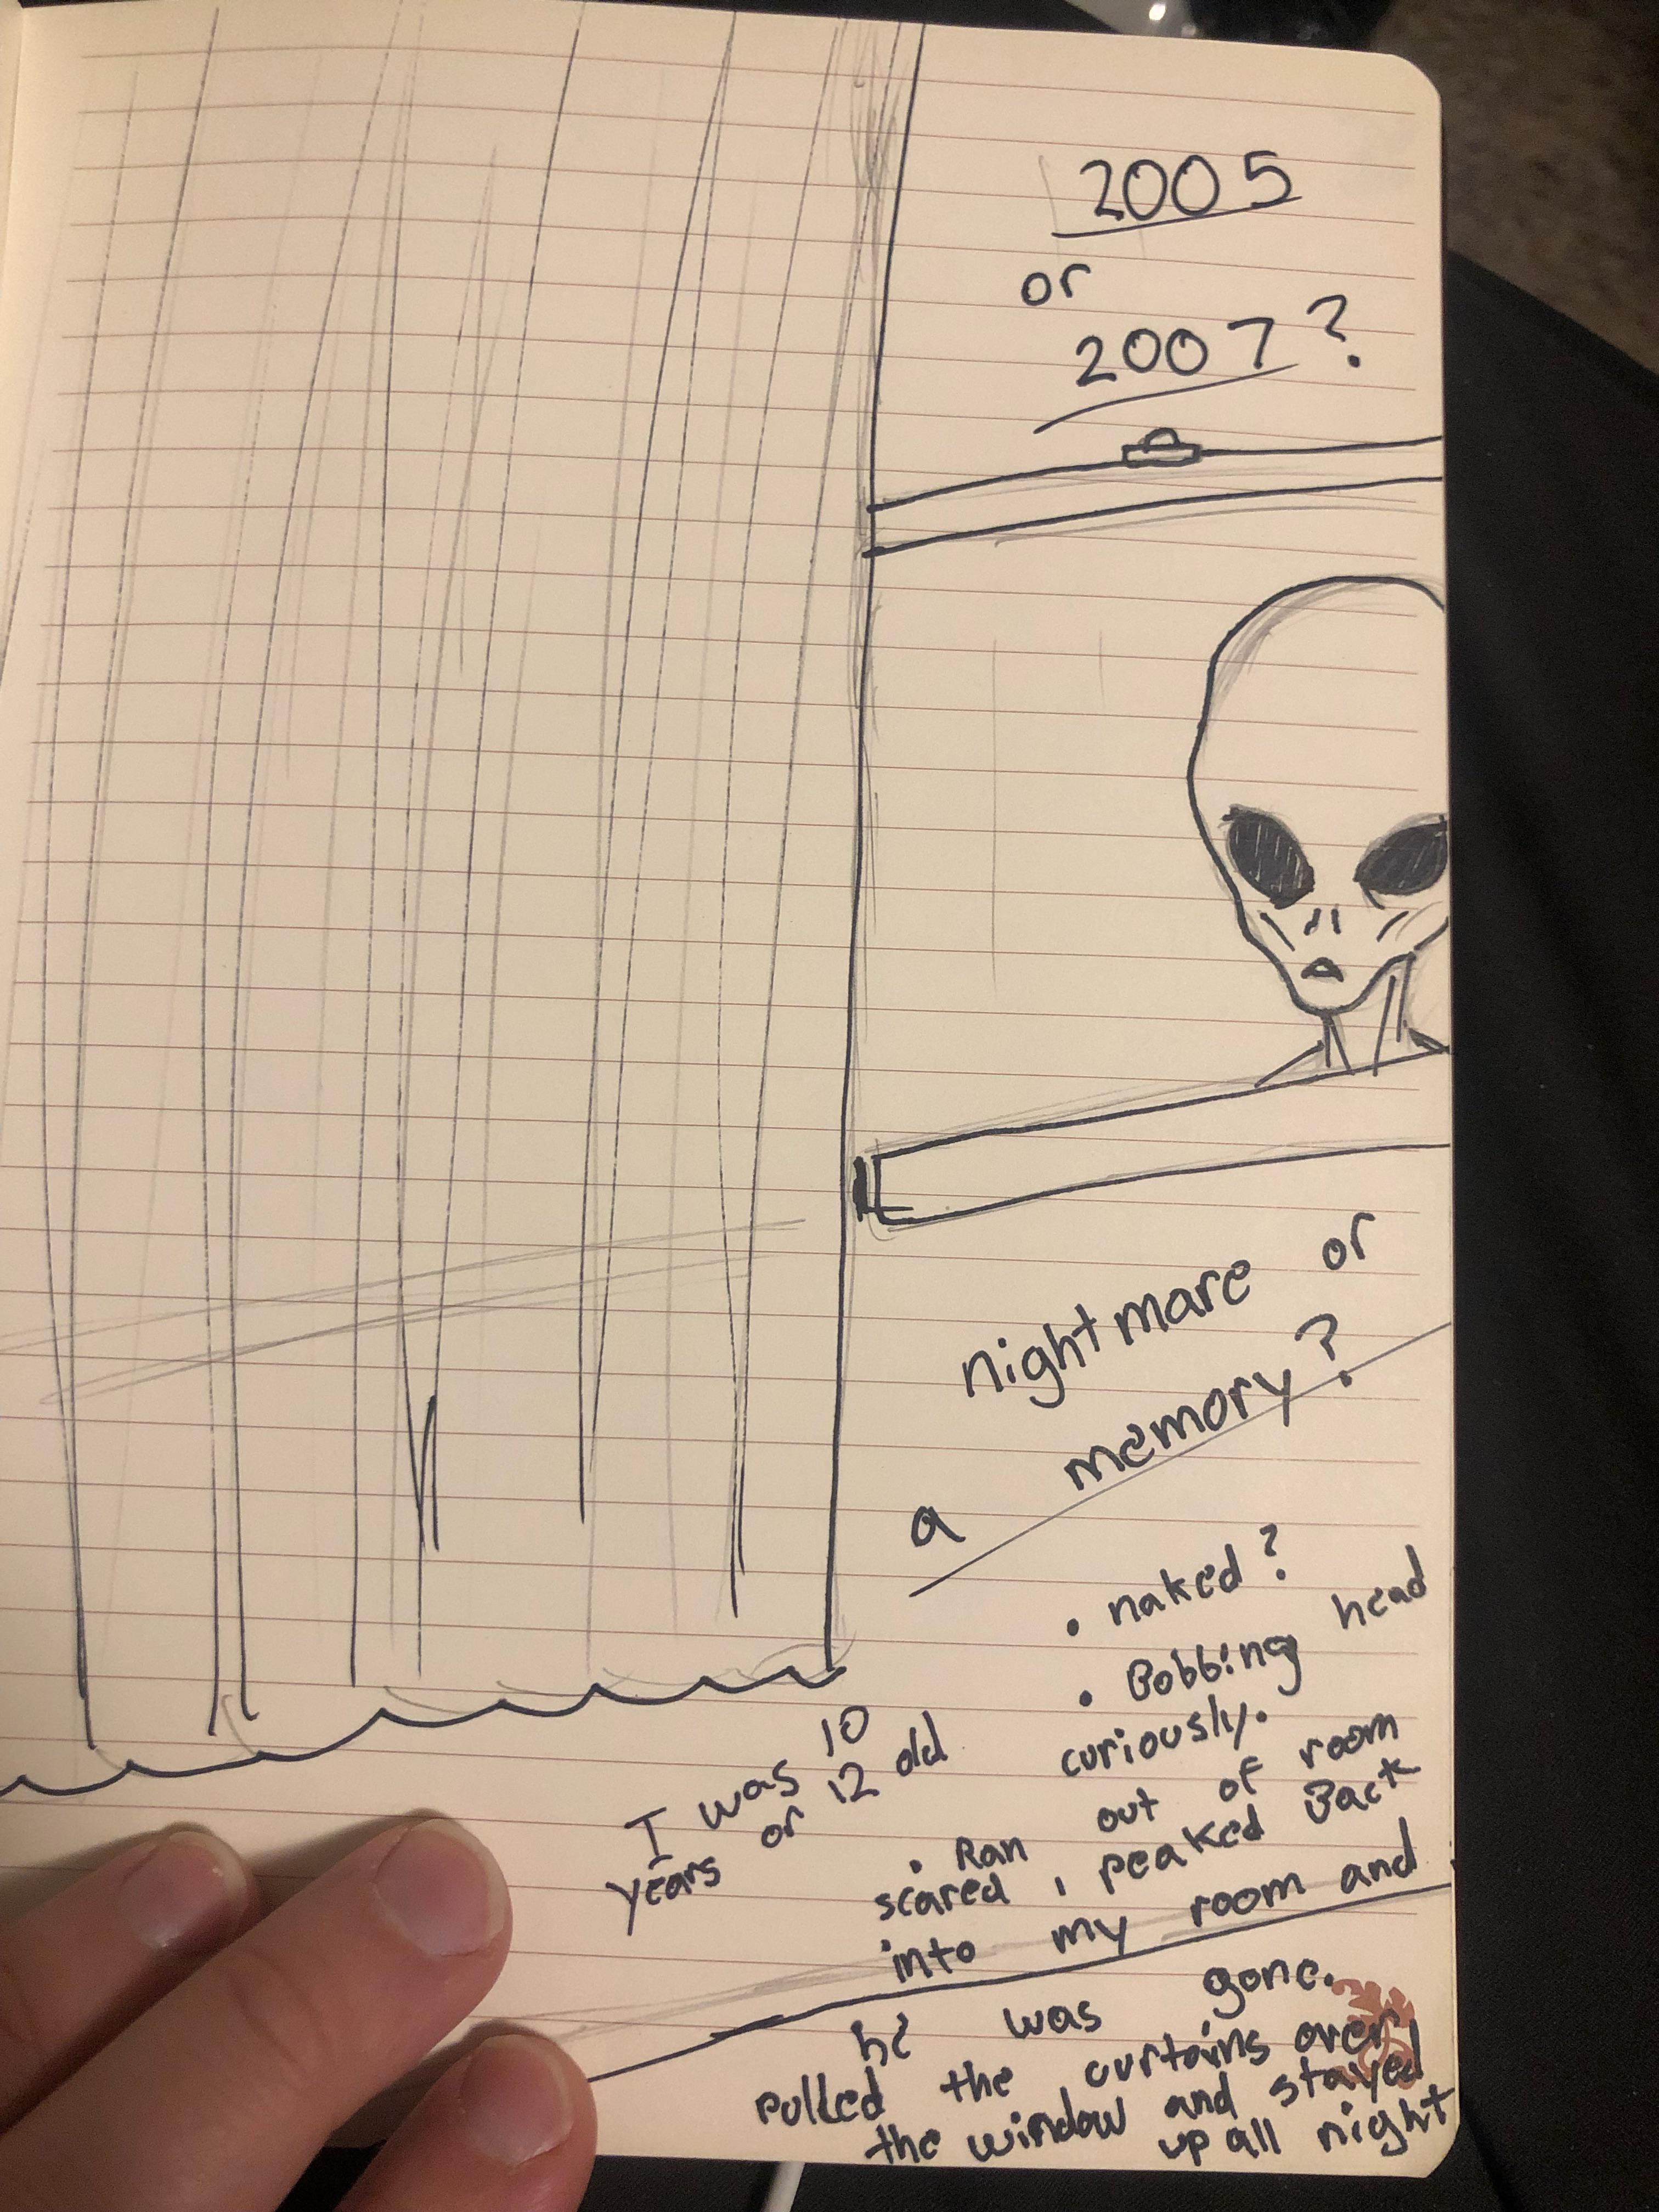 2005
or
2007?
nightmare or
a memory?
• naked?
• Bobbing head
curiously.
I was 10
or 12
years old
• Ran out of room
scared, peaked Back
into my room and
he was gone.
Pulled the curtains over
the window and stayed
up all night